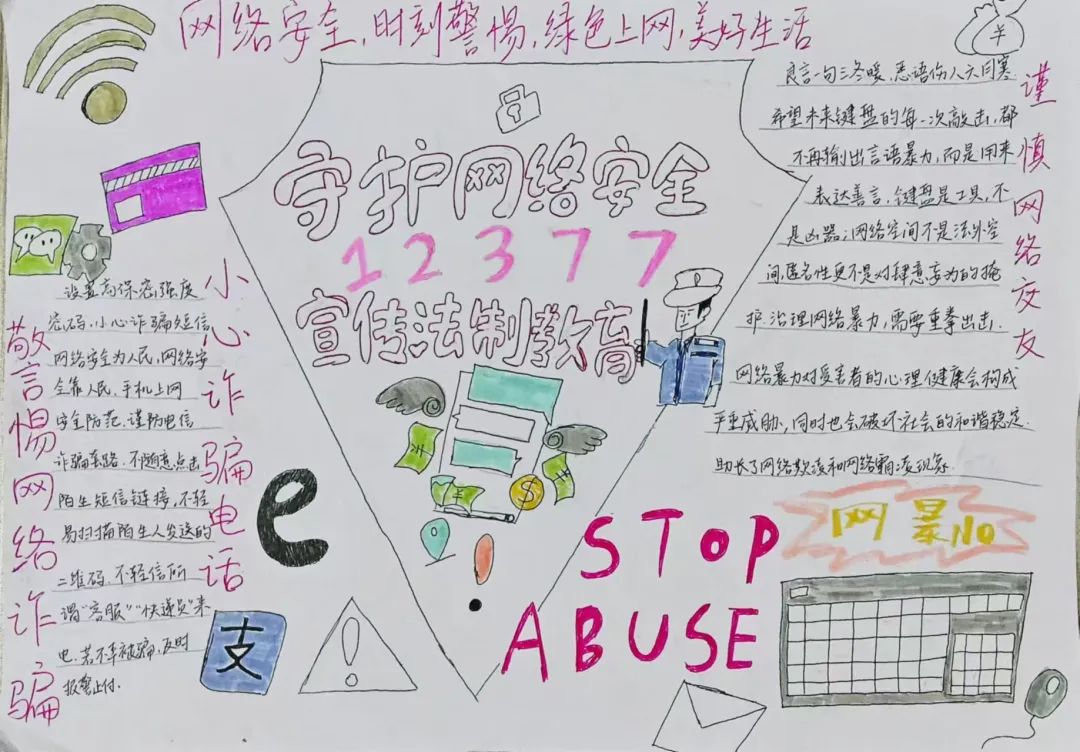 网络安全,时刻警惕,绿色上网,美好生活
守护网络安全
12377
宣传法制教育
设置高保密强度
密码,小心诈骗短信
网络安全为人民,网络安
全靠人民,手机上网
安全防范,谨防电信
诈骗套路,不随意点击
陌生短信链接,不轻
易扫描陌生人发送的
二维码,不轻信所
谓“客服”“快递员”来
电,若不幸被骗,及时
报警止付.
警惕网络诈骗
小心诈骗电话
良言一句三冬暖,恶语伤人六月寒.
希望未来键盘的每一次敲击,都
不再输出言语暴力,而是用来
表达善言,键盘是工具,不
是凶器;网络空间不是法外空
间匿名性更不是对肆意妄为的掩
护.治理网络暴力,需要重拳出击.
网络暴力对受害者的心理健康会构成
严重威胁,同时也会破坏社会的和谐稳定.
助长了网络欺凌和网络霸凌现象.
谨慎网络交友
网暴NO
STOP
ABUSE
e
支
¥
$